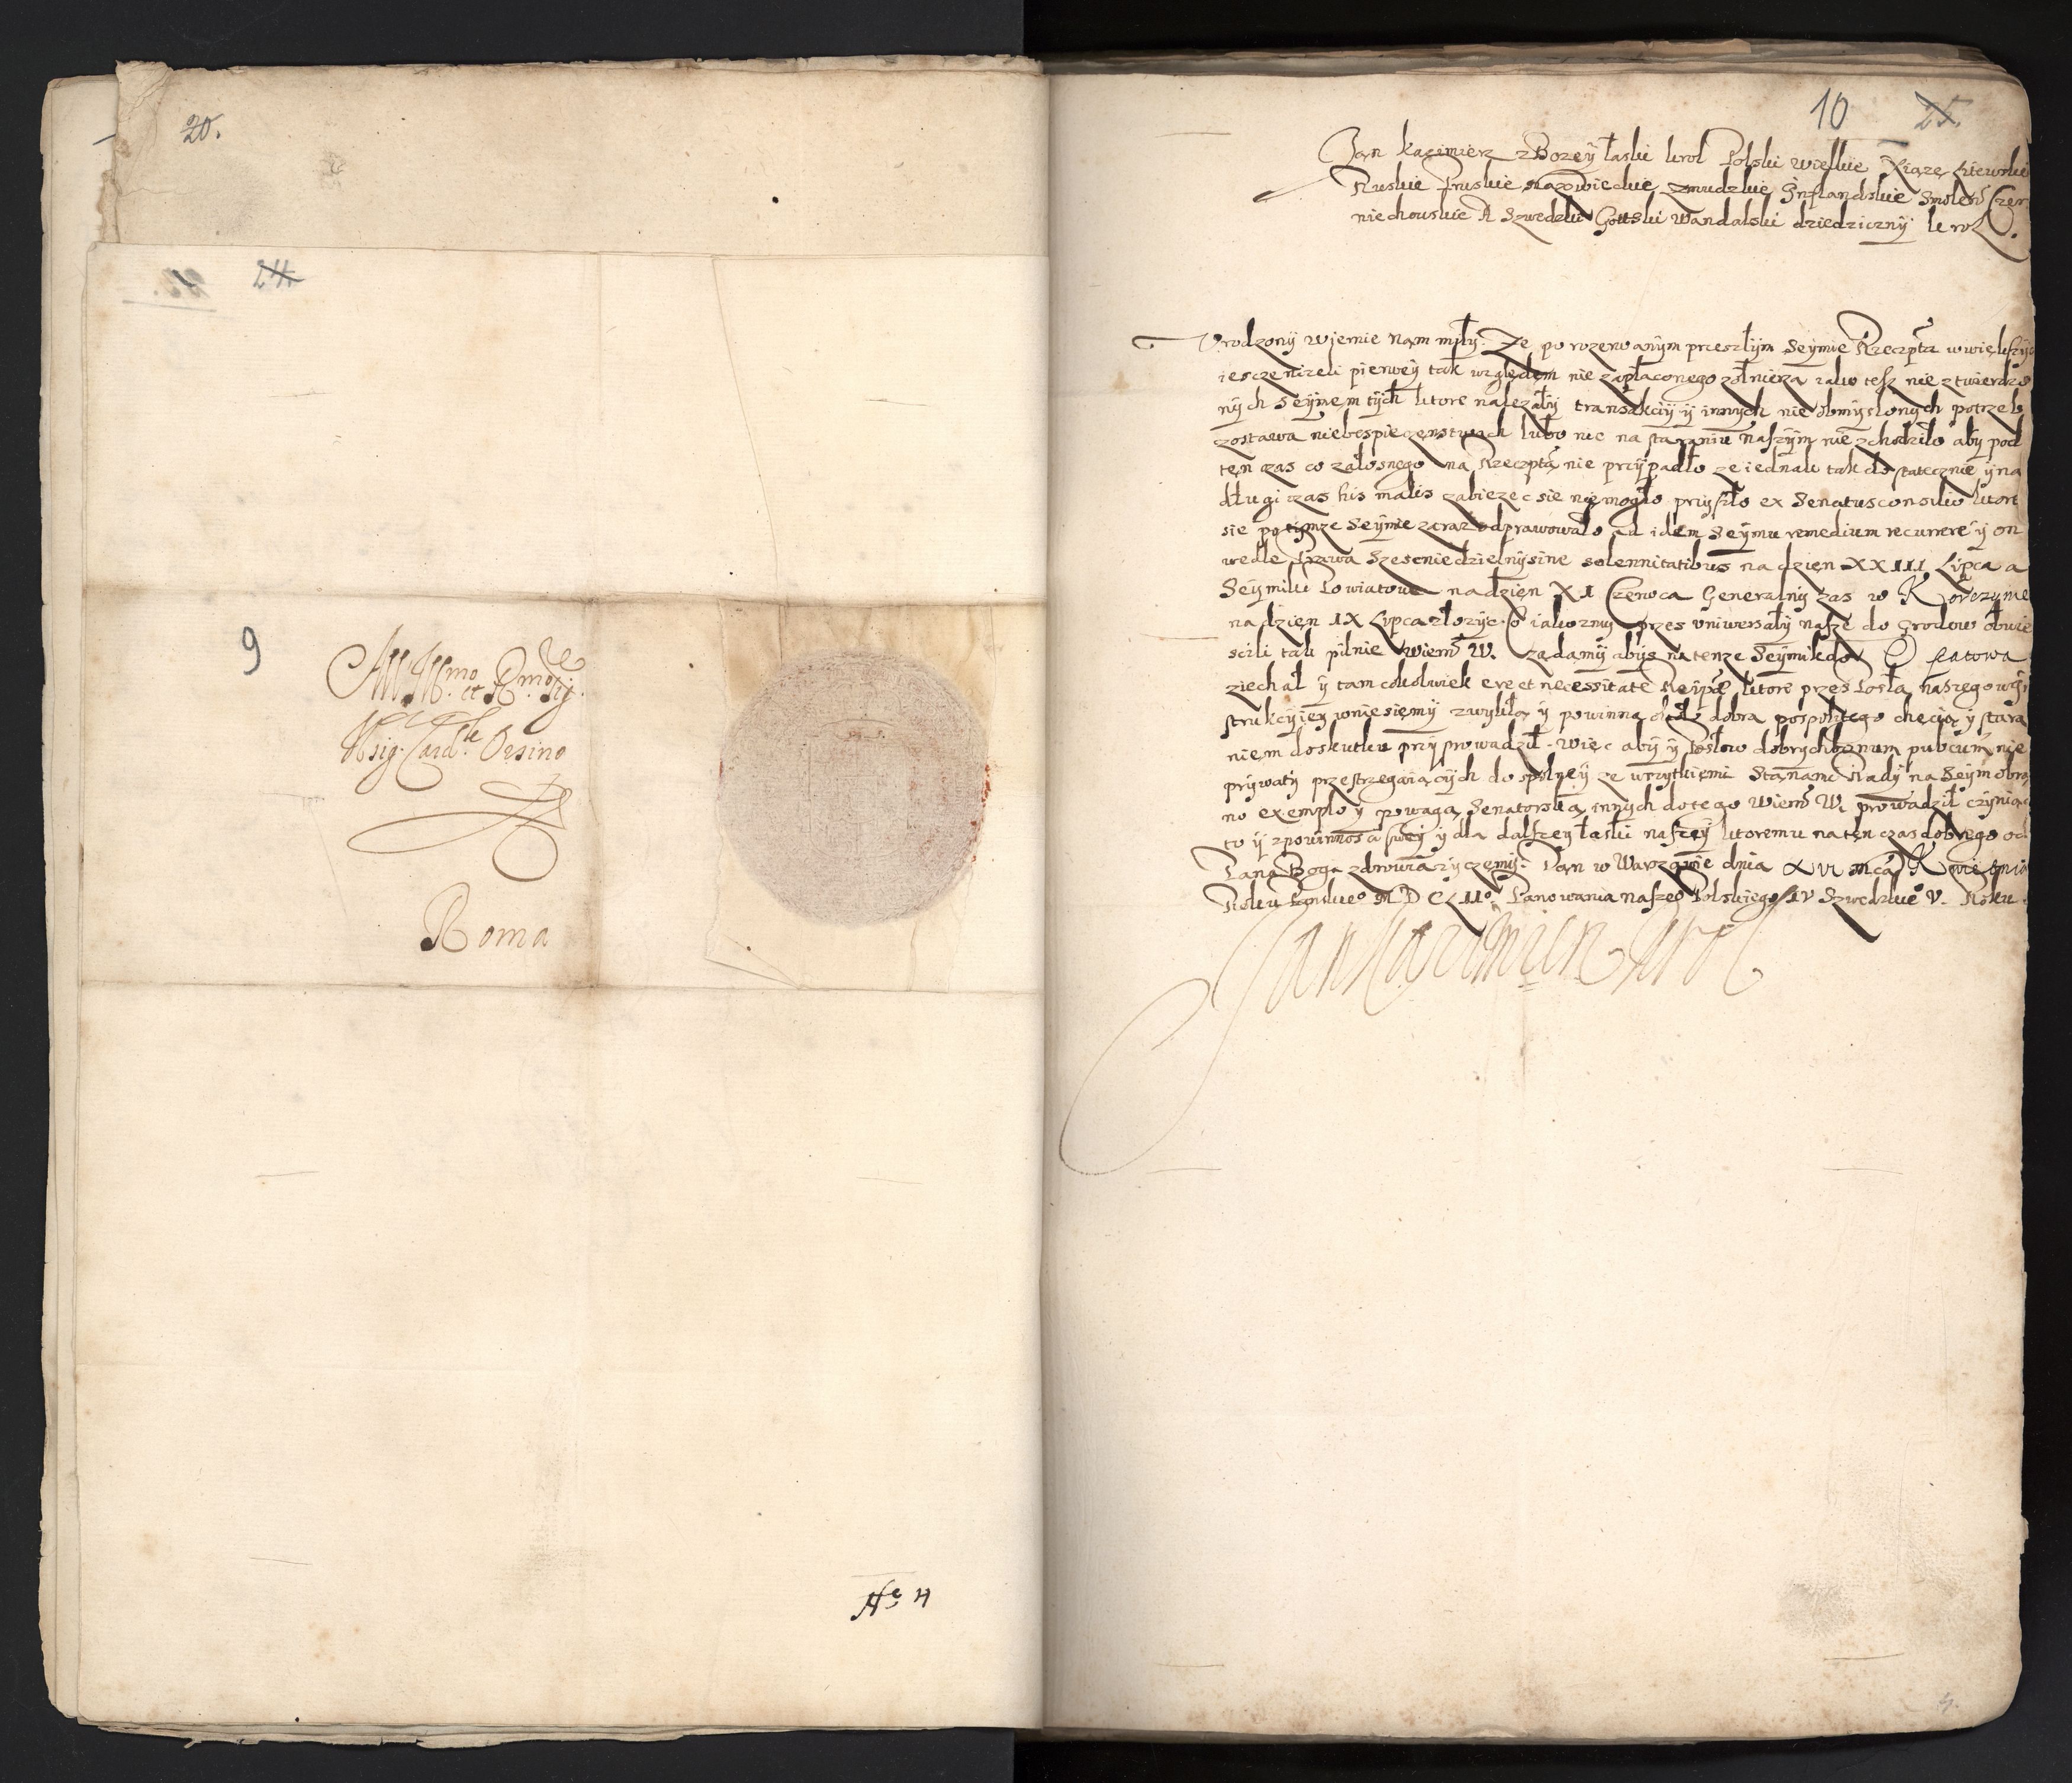 20.
24
9
All Ill.mo et R.mo Sig.re
Il Sig. Card.le Orsino
Roma
No 4
10 25.
Jan Kazimierz z Bozeÿ łaski krol Polski wielkie Xiąze Litewskie
Ruskie Pruskie Mazowieckie zmudzkie Inflandskie Smolen Czer
niechowskie A Szwedzki Gottski Wandalski dziedziczny krol.
Vrodzony wiernie nam miły. Ze po rozerwanym przeszłym Seÿmie Rzeczpta w większych
iescze nizeli pierweÿ tak względem nie zapłaconego zołnierza iako tesz nie ztwierdzo
nych Seÿmem tÿch ktore nalezały transakciÿ ÿ innych nie obmyslonych potrzeb
zostawa niebespieczenstwach lubo nic na staraniu naszÿm nie zchodziło aby pod
ten czas co załosnego na Rzeczptą nie przÿpadło ze iednak tak dostatecznie ÿ na
długi czas his malis zabiezec sie niemogło przÿszło ex Senatusconsilio ktore
sie po tÿmze Seÿmie zaraz odprawowało ad idem Seÿmu remedium recurrere ÿ on
wedle Prawa Szescniedzielnÿ sine solennitatibus na dzien XXIII Lipca a
Seÿmiki Powiatowe na dzien XI Czerwca Generalnÿ zas w Korczynie
na dzien IX Lipca złozÿc. O iako znu przes vniwersałÿ nasze do Grodow obwie
scili tak pilnie Wiern W. ządamy abÿs na tenze Seÿmik do Opatowa
ziechał ÿ tam cokolwiek e re et necessitate Reipae ktore przes Posła naszego w In
strukcÿieÿ wniesiemÿ zwykłą ÿ powinną ku dobra pospolitego chęcią ÿ stara
niem do skutku przÿprowadził. Więc abÿ ÿ Posłow dobrych bonum publicum nie
prÿwatÿ przestrzegaiącÿch do spolneÿ ze wszÿtkiemi Stanami Radÿ na Seÿm obra
no exemplo ÿ powagą Senatorską innych do tego Wiern W. prowadził czÿniąc
to ÿ z powinnosci sweÿ ÿ dla dalszeÿ łaski naszeÿ ktoremu na ten czas dobrego od
Pana Boga zdrowia zÿczemÿ. Dan w Warszawie dnia XVI mca Kwietnia
Roku Panskieo MDCLIIo Panowania naszeo Polskiego IV Szwedzkieo V. Roku.
Jan Kazimierz Krol
4.